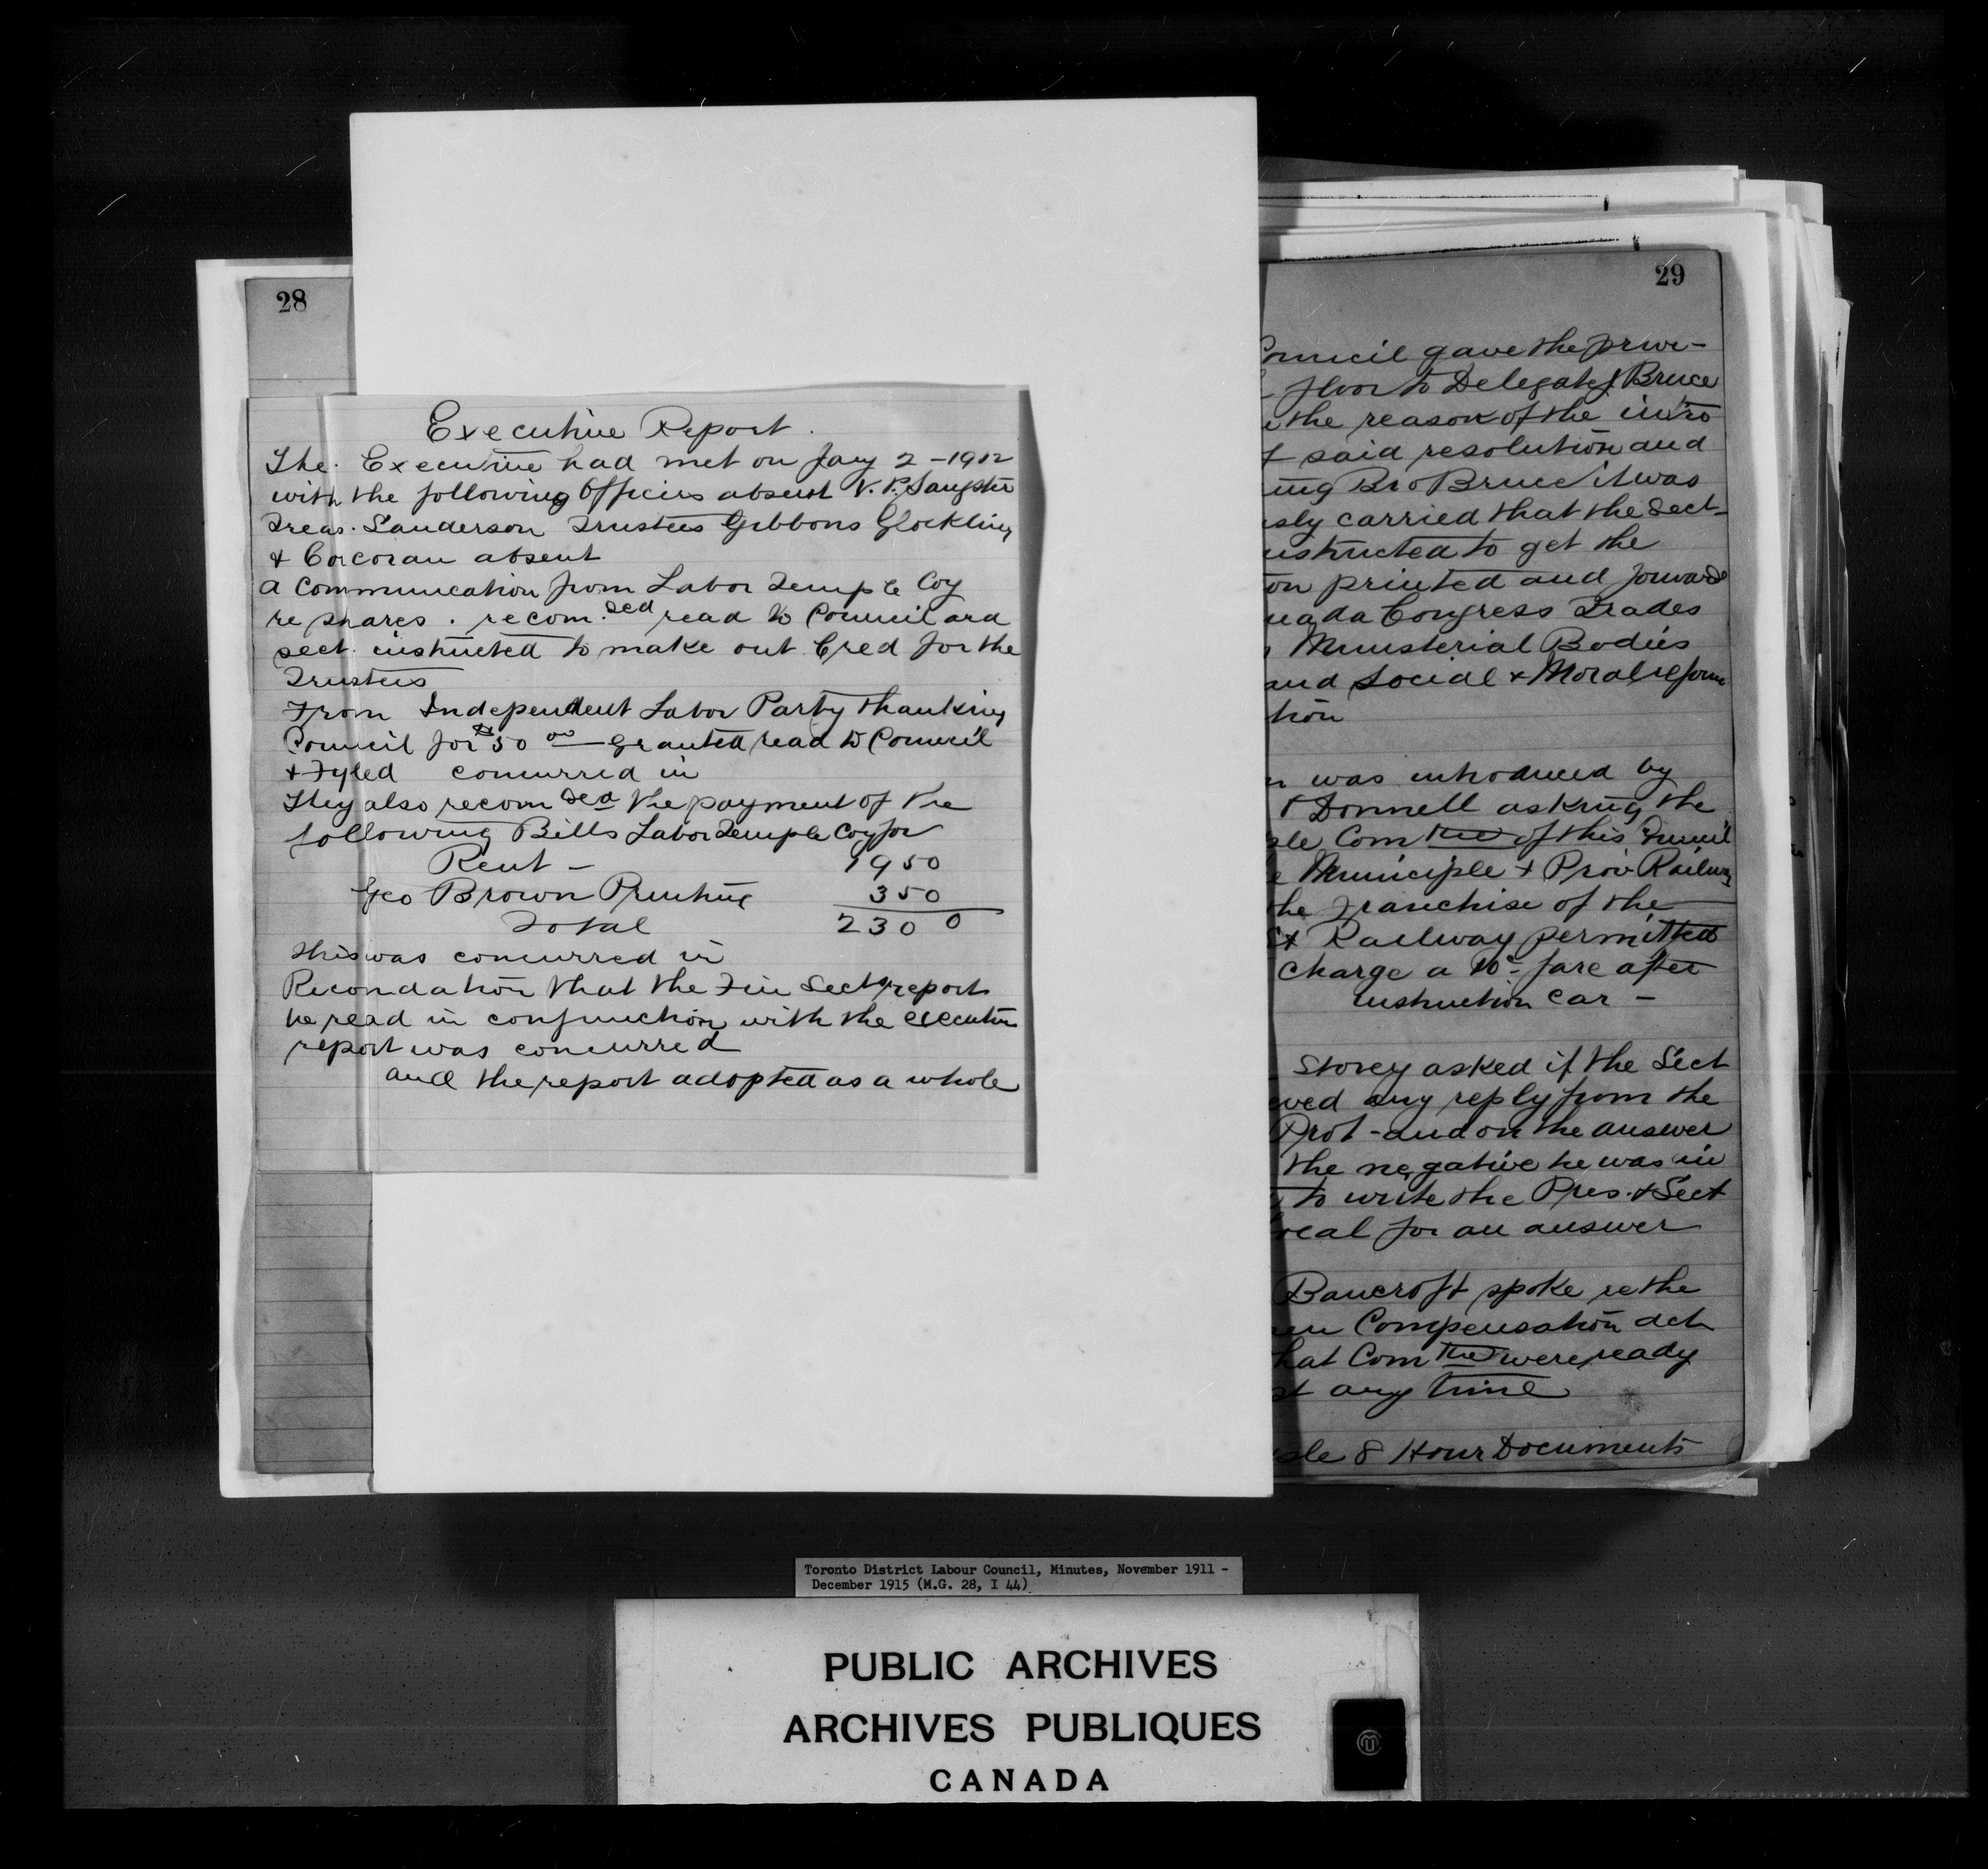 28
Executive Report.
The Executive had met on Jany 2 - 1912
with the following Officers absent V. P. Sangster
Treas. Sanderson Trustees Gibbons Glockling
& Corcoran absent
A Communication from Labor Temple Coy
re shares. recom.ded read to Council and
sect. instructed to make out Cred for the
Trustees
From Independent Labor Party thanking
Council for $50 00 granted read to Council
& Fyled concurred in
They also recomded the payment of the
following Bills Labor Temple Coy for
Rent - 1950
Geo Brown Printing 350
Total 2300
This was concurred in
Recondation that the Fin Sects report
be read in conjunction with the executive
report was concurred
and the report adopted as a whole
29
Council gave the privi-
floor to Delegate J Bruce
the reason of the intro
said resolution and
ing Bro Bruce it was
sly carried that the Sect-
nstructed to get the
on printed and forward
nada Congress Trades
Ministerial Bodies
and Social & Moral reform
tion
was introduced by
O'Donnell asking the
ple Comtee of this Council
Municiple & Prov. Railway
the Franchise of the
St Railway permitted
charge a 10c fare after
instruction car -
Storey asked if the Sect
eved any reply from the
Prot - and on the answer
the negative he was in
to write the Pres. & Sect
ocal for an answer
Bancroft spoke re the
en Compensation act
hat Comtee were ready
at any time
sle 8 Hour Documents
Toronto District Labour Council, Minutes, November 1911 -
December 1915 (M.G. 28, I 44)
PUBLIC ARCHIVES
ARCHIVES PUBLIQUES
CANADA